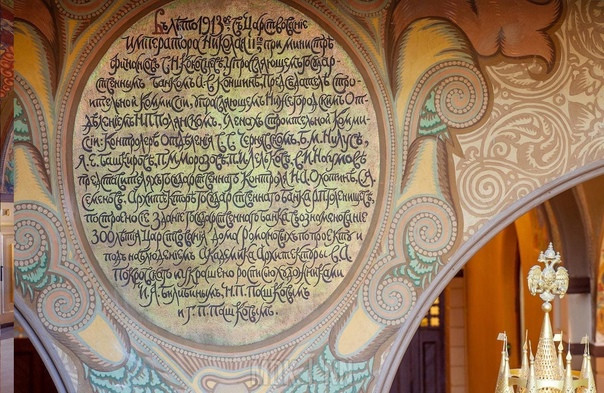 Въ лѣто 1913ое въ Царствованіе
Императора Николая II при Министрѣ
финансовъ В.Н. Коковцевѣ, Управляющемъ Государ-
ственнымъ банкомъ А.В. Коншинѣ, Председателѣ стро-
ительной Коммисіи, Управляющемъ Нижегородскимъ Отд-
ѣленіемъ Н.П. Полянскомъ, Членахъ строительной Комми-
сіи: Контролерѣ Отдѣленія Б.М. Нилусѣ,
Я.Е. Башкировѣ, П.М. Морозовѣ, Наумовѣ
представителяхъ Государственнаго Контроля Н.А. С.А.
Архитекторѣ Государственнаго банка
построено сіе Зданіе Государственнаго банка въ ознаменованіе
300лѣтія Царствованія дома Романовыхъ по проэкту и
подъ наблюденіемъ Академика Архитектуры В.А.
Покровскаго и украшено росписью художниками
И.Я. Билибинымъ, Н.П. Пашковымъ
и Г.П. Пашковымъ.